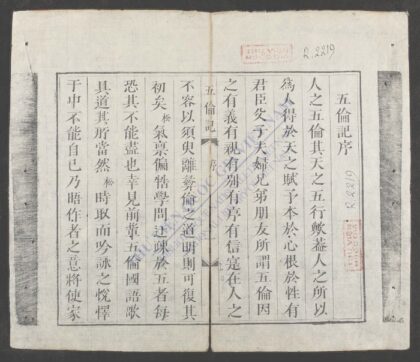 五倫記序
人之五倫其天之五行歟蓋人之所以
為人得於天之賦予本於心根於性有
君臣父子夫婦兄弟朋友所謂五倫因
之有義有親有別有序有信寔在人之
五倫記 序
不容以須臾離彛倫之道明則可復其
初矣松氣稟偏牿學問迂疎於五者每
恐其不能盡也幸見前軰五倫國語歌
具道其所當然松時取而吟詠之悅懌
于中不能自已乃晤作者之意將使家
R.2219
R.2219